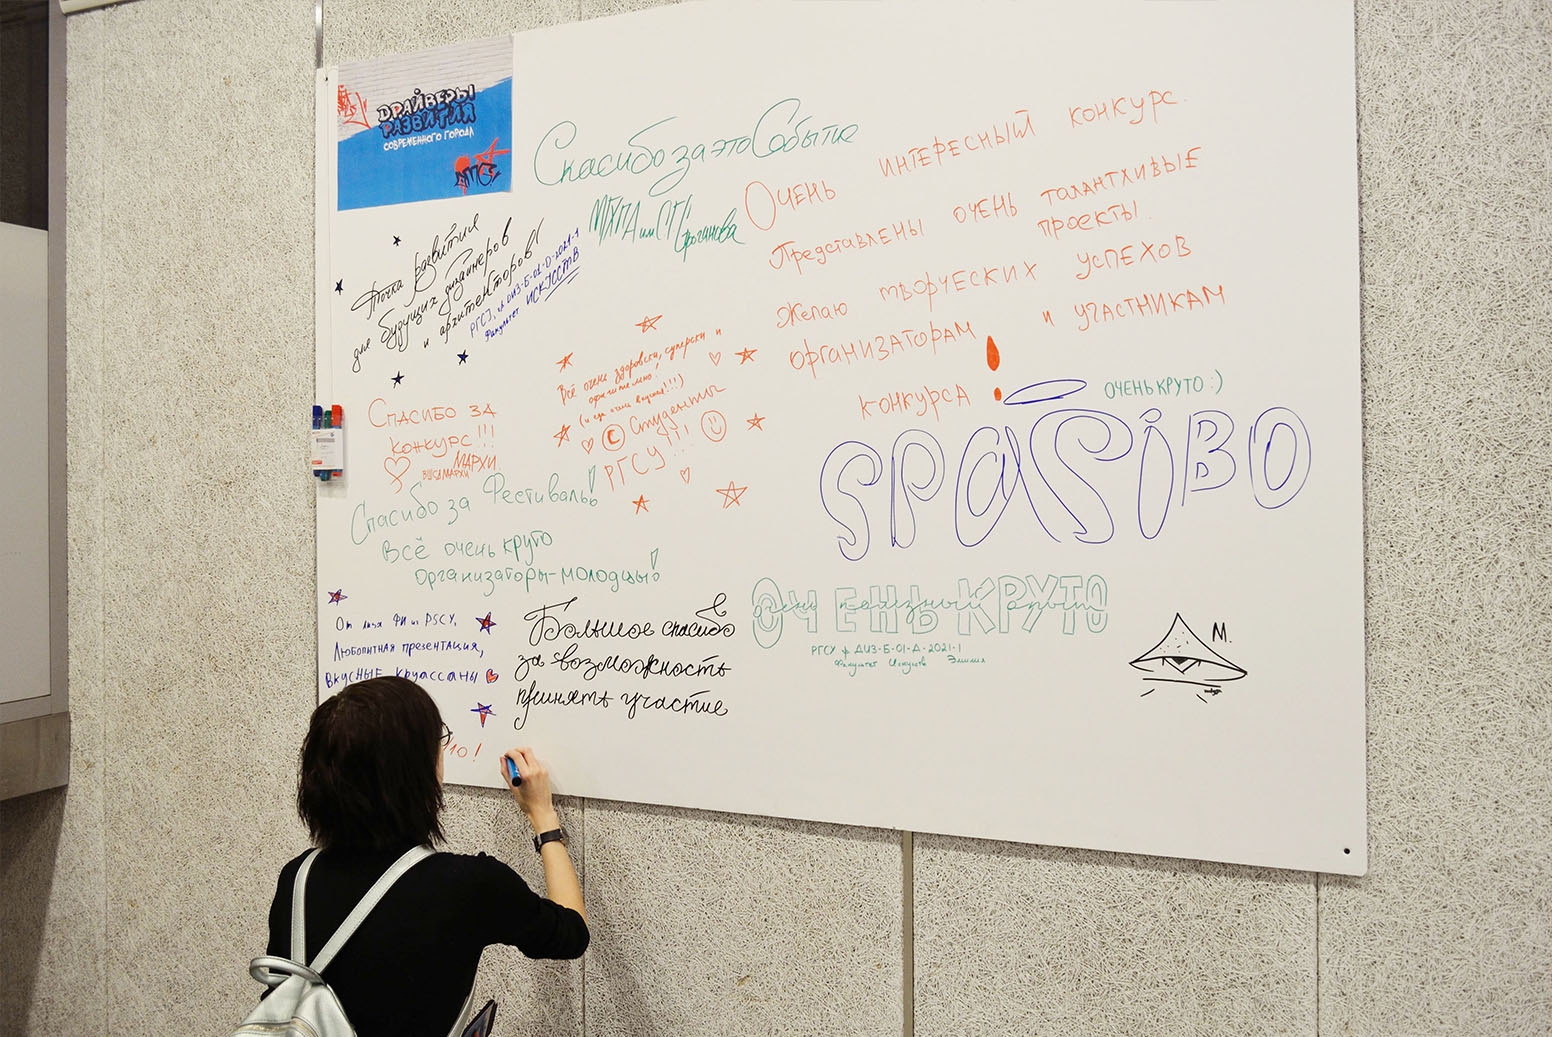 ДРАЙВЕРЫ
РАЗВИТИЯ
СОВРЕМЕННОГО ГОРОДА
Спасибо за это Событие
МХПА им СГ Строганова
Очень интересный конкурс.
Представлены очень талантливые
проекты.
Желаю творческих успехов
организаторам и участникам
конкурса!
Точка развития
для будущих дизайнеров
и архитекторов!
РГСУ, ф. ДИЗ-Б-01-D-2021-1
Факультет ИСКУССТВ
Всё очень здоровски, суперски и
(и ещё очень вкусно!!!)
© Студенты
РГСУ!!!
Спасибо за
конкурс!!!
МАРХИ
Спасибо за Фестиваль!
Всё очень круто
Организаторы-молодцы!
ОЧЕНЬ КРУТО :)
SPASIBO
От РГСУ.
Любопытная презентация,
вкусные круассаны
Большое спасибо
за возможность
принять участие
ОЧЕНЬ КРУТО
РГСУ ф ДИЗ-Б-01-Д-2021-1
Факультет Искусств
М.
ю!